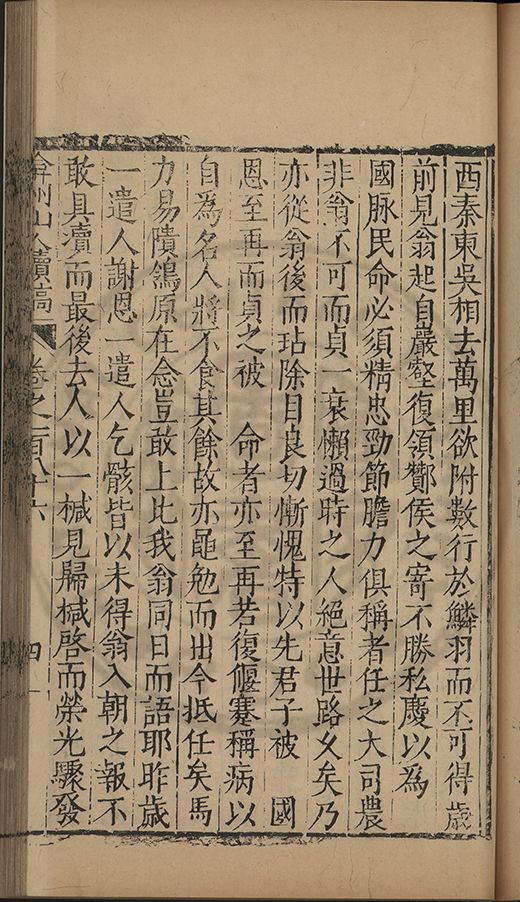 西秦東吳相去萬里欲附數行於鱗羽而不可得歲
前見翁起自巖壑復領酇侯之寄不勝私慶以為
國脉民命必須精忠勁節膽力俱稱者任之大司農
非翁不可而貞一衰懶過時之人絕意世路久矣乃
亦從翁後而玷除目良切慚愧特以先君子被 國
恩至再而貞之被 命者亦至再若復偃蹇稱病以
自為名人將不食其餘故亦黽勉而出今抵任矣馬
力易隤鴒原在念豈敢上比我翁同日而語耶昨歲
一遣人謝恩一遣人乞骸皆以未得翁入朝之報不
敢具瀆而最後去人以一椷見歸椷啓而榮光驟發
弇州山人續稿 卷之一百八十六 四